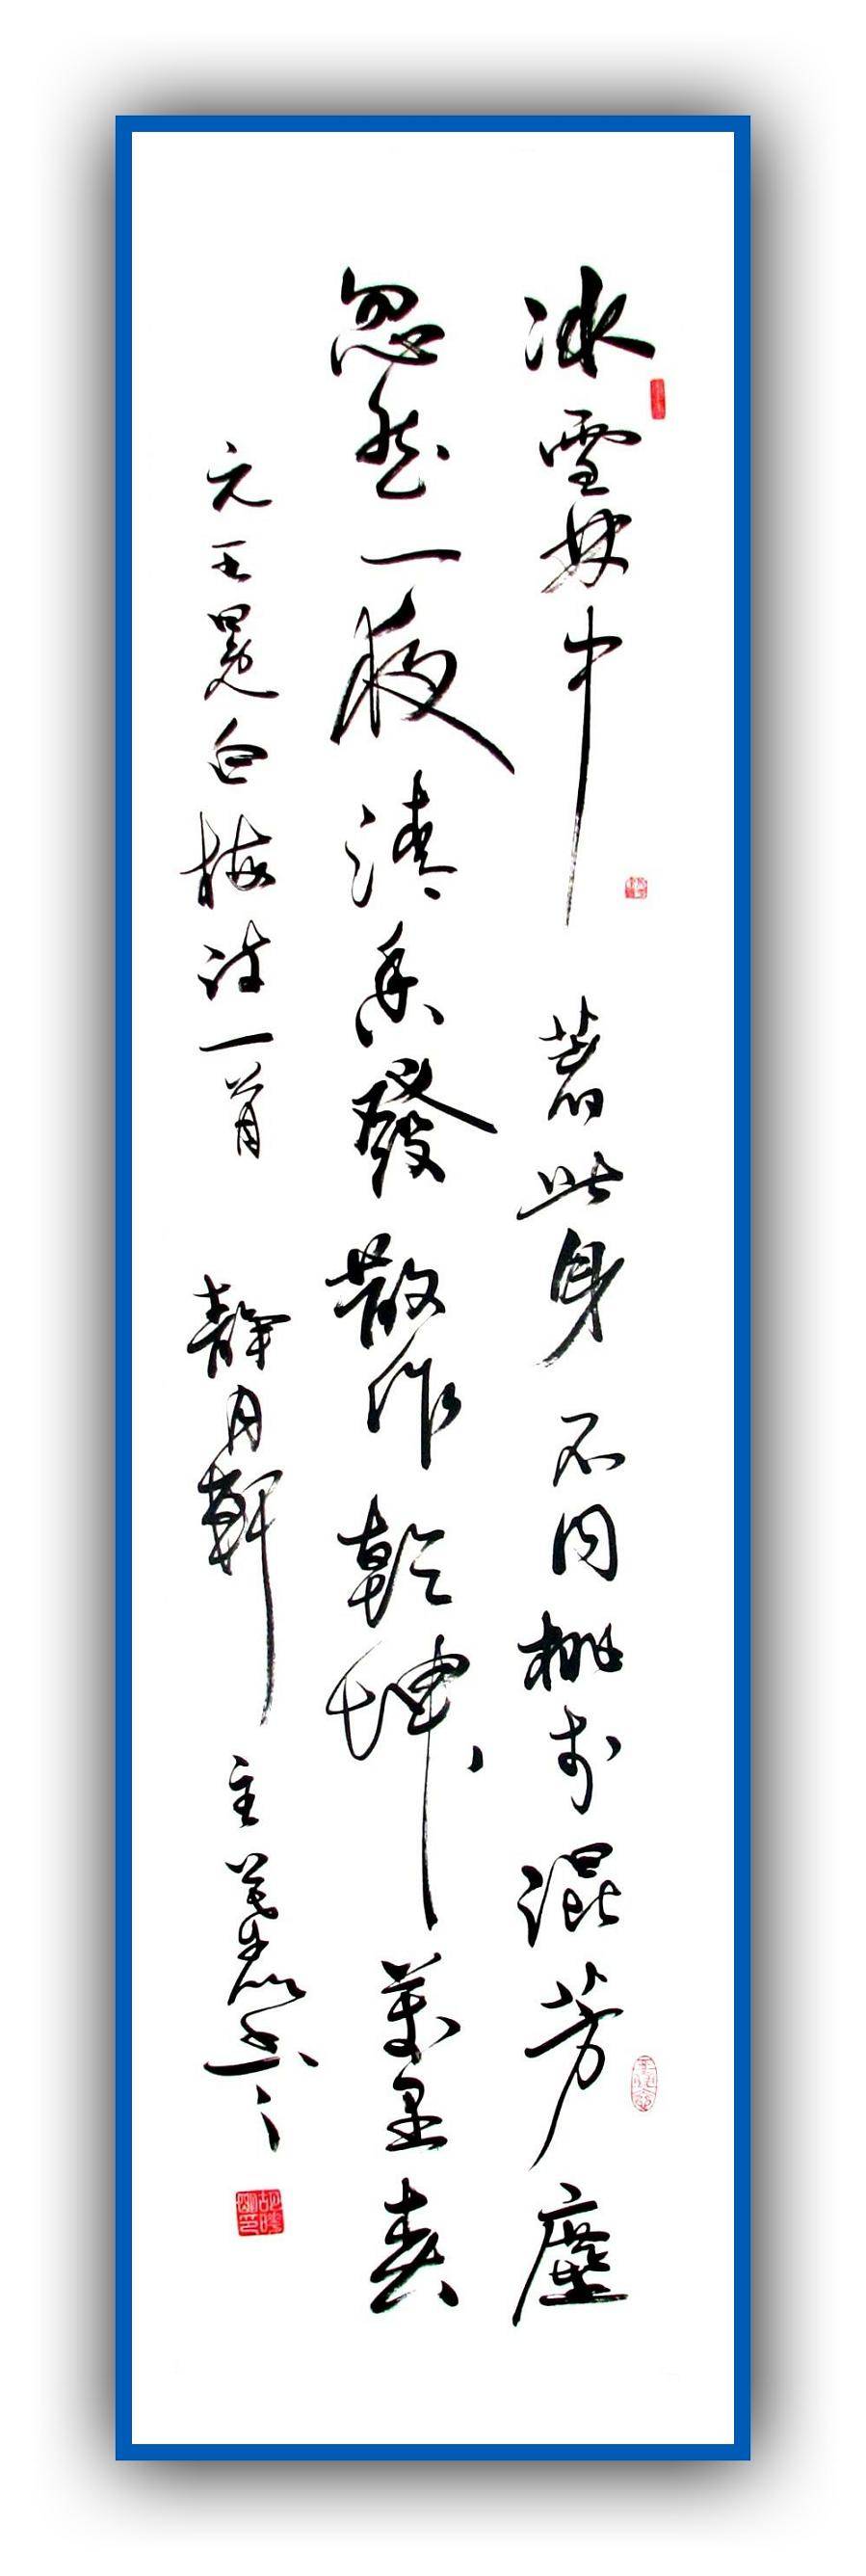 冰雪林中著此身不同桃李混芳塵
忽然一夜清香發散作乾坤萬里春
元王冕白梅詩一首靜月軒主